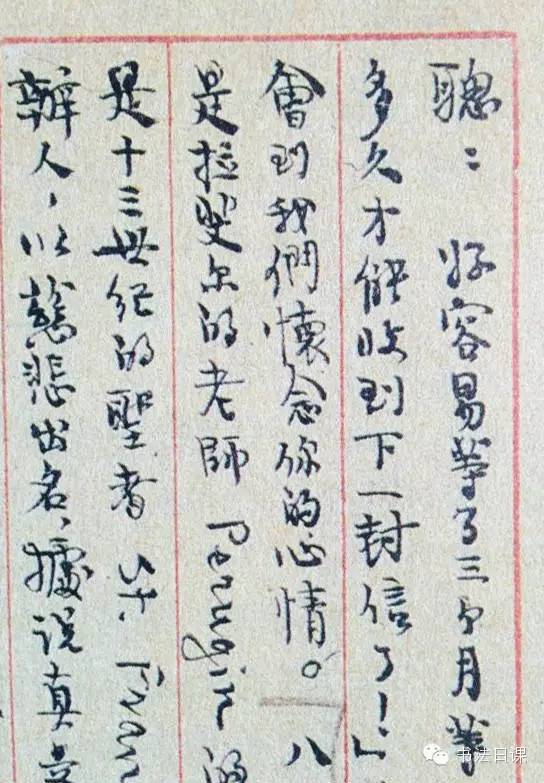 聰：好容易等了三个月等
多久才能收到下一封信了！」
會到我們懷念你的心情。八
是拉斐尔的老師 的
是十三世纪的聖者
辦人，以慈悲出名，據说真
书法日课